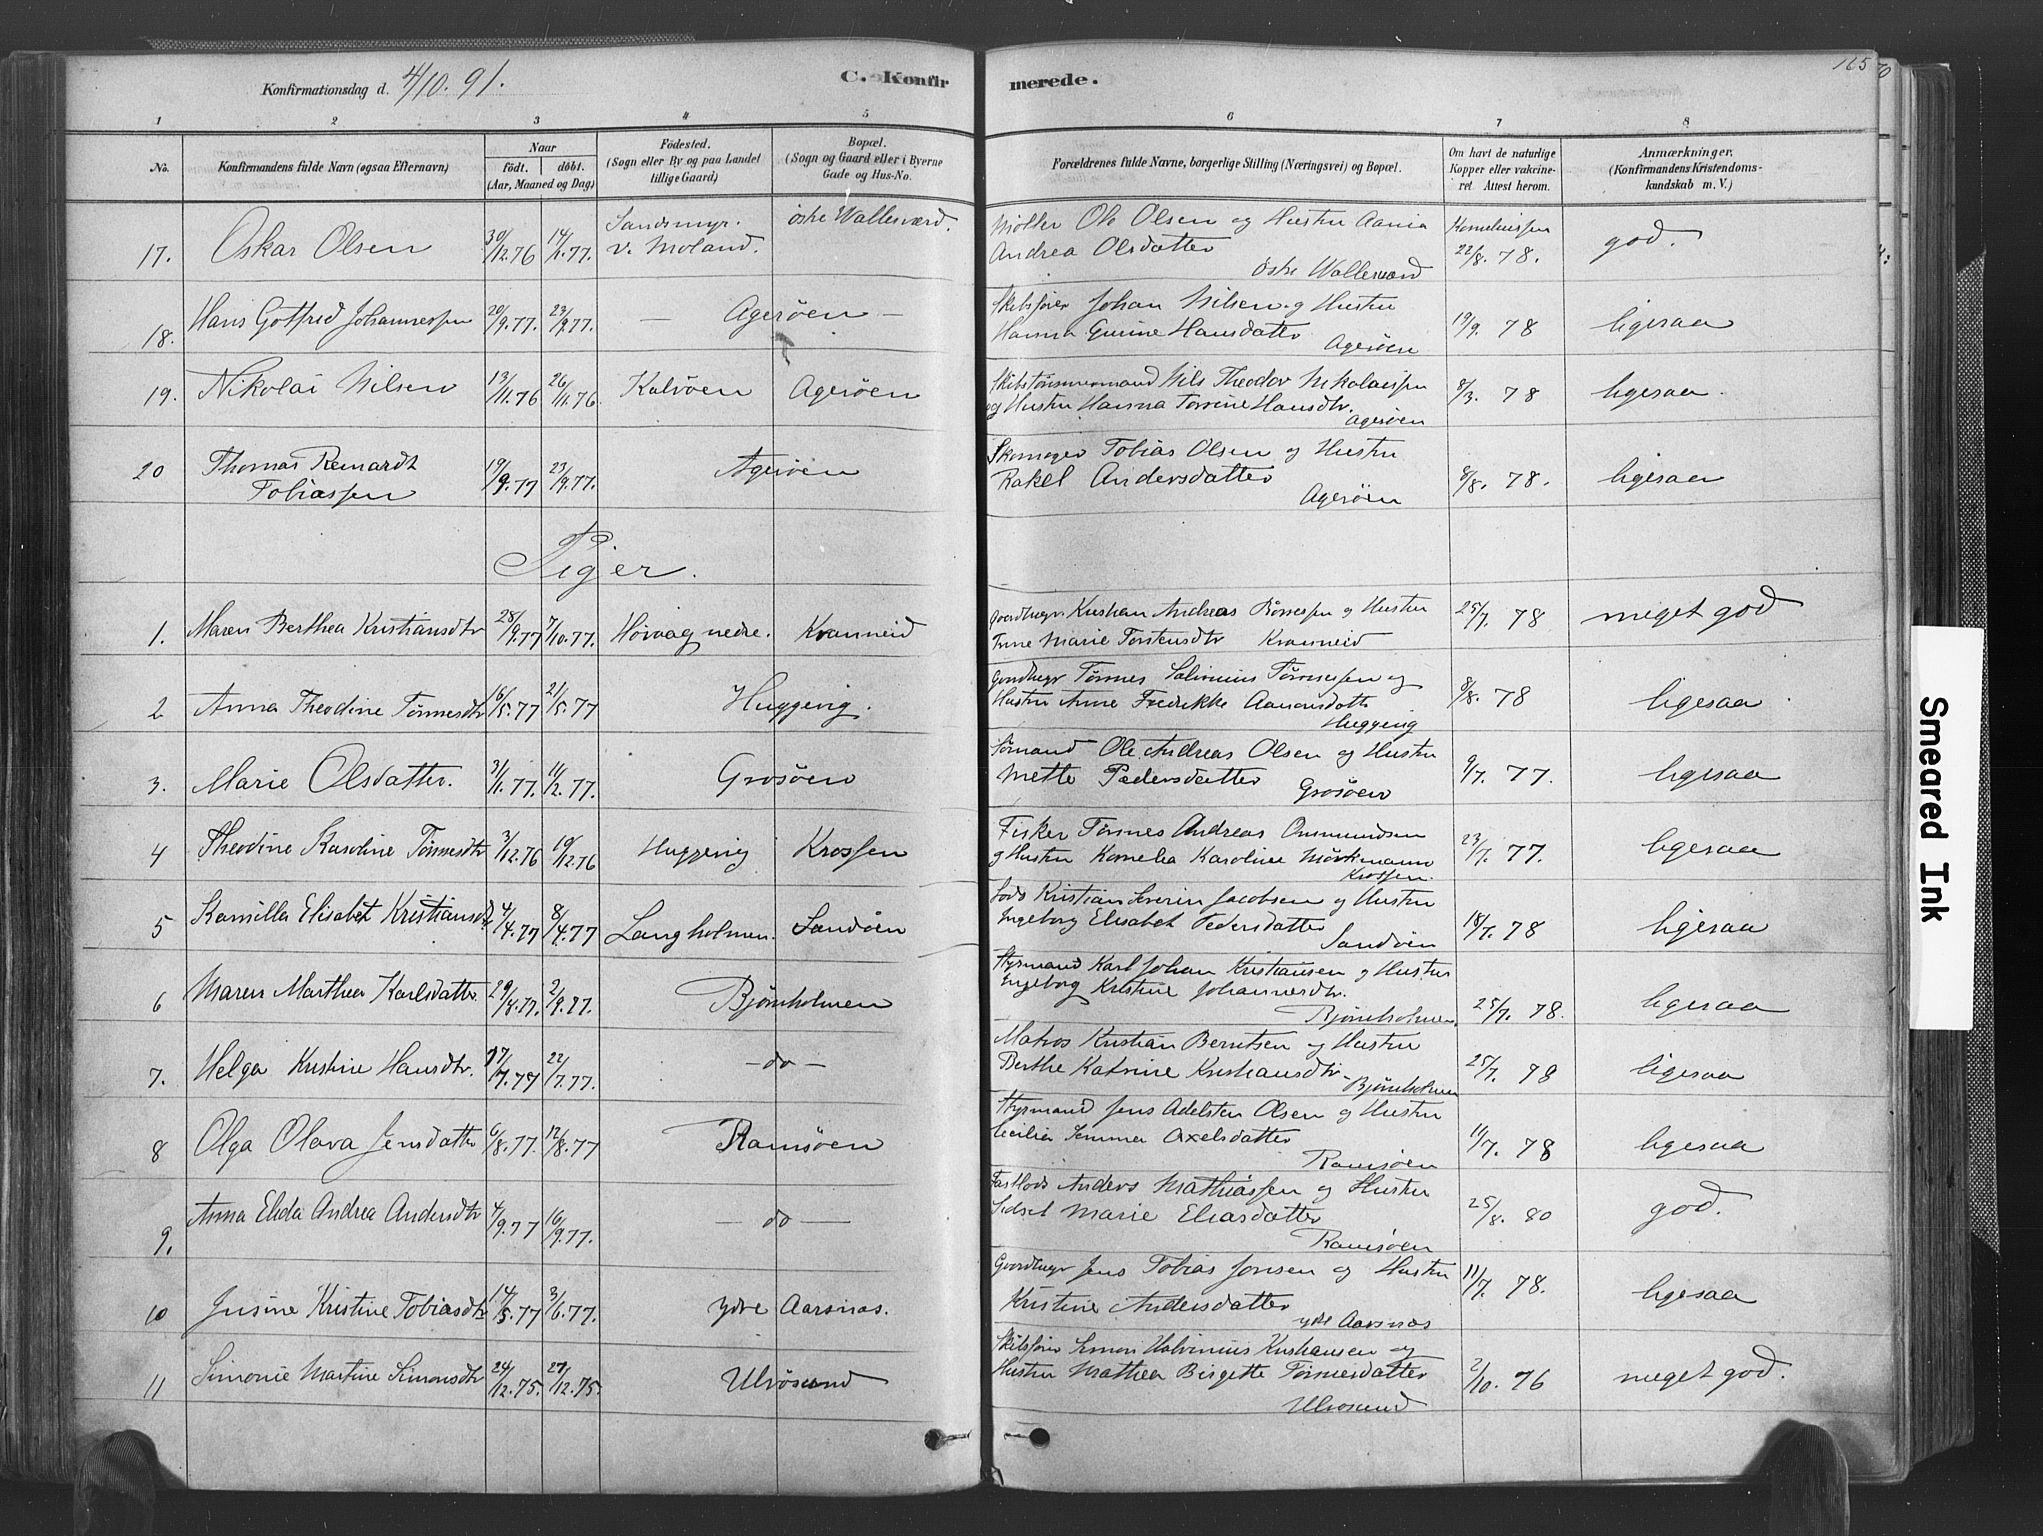 165
Konfirmationsdag d. 4/10. 91.
C. Konfirmerede.
1 2 3 4 5 6 7 8
No. Konfirmandens fulde Navn (ogsaa Efternavn) Naar født. døbt. (Aar, Maaned og Dag) Fødested. (Sogn eller By og paa Landet tillige Gaard) Bopæl. (Sogn og Gaard eller i Byerne Gade og Hus-No. Forældrenes fulde Navne, borgerlige Stilling (Næringsvei) og Bopæl. Om havt de naturlige Kopper eller vakcineret Attest herom. Anmærkninger. (Konfirmandens Kristendomskundskab m. V.)
17. Oskar Olsen 30/12.76 14/1.77. Sandsmyr. V. Moland. östre Wallesværd. Møller Ole Olsen og Hustru
Andrea Olsdatter östre Wallesværd 22/8. 78. god.
18. Hans Gotfred Johannessen 20/9.77. 23/9.77. — Agerøen — Skibsfører Johan Nilsen og Hustru
Hanna Gurine Hansdatter Agerøen 19/9. 78 ligesaa
19. Nikolai Nilsen 13/11.76 26/11.76 Kalvöen Agerøen Skibstømmermand Nils Theodor Nikolaissen
og Hustru Hanna Torine Hansdtr. Agerøen 8/3. 78 ligesaa.
20 Thomas Reinardt Tobiassen 19/9.77 23/9.77. Agerøen Skomager Tobias Olsen og Hustru
Rakel Andersdatter Agerøen 8/8. 78. ligesaa
Piger.
1. Maren Berthea Kristiansdtr 28/9.77 7/10.77. Høivaag nedre. Kvanneid Gaardbrugr Kristian Andreas og Hustru
Anne Marie Torstensdtr Kvanneid 25/7. 78 meget god
2 Anna Theodine Tönnesdtr 16/5.77 21/5.77 Huggevig. Gaardbrugr Tönnes Salvinius Tönnessen og
Hustru Anne Fredrikke Aanonsdatt Huggevig 8/8. 78 ligesaa
3. Marie Olsdatter. 31/1.77. 11/2.77. Grosöen Sømand Ole Andreas Olsen og Hustru
Mette Pedersdatter Grosöen 9/7. 77. ligesaa
4 Theodine Karoline Tönnesdtr 3/12.76 10/12.76 Huggevig Krossen Fisker Tönnes Andreas Omundsen
og Hustru Kornelia Karoline Mörkmann Krossen. 23/7. 77. ligesaa
5 Kamilla Elisabet Kristiansdtr 4/4.77 8/4.77 Langholmen. Sandöen Lods Kristian Severin Jacobsen og Hustru
Ingeborg Elisabet Pedersdatter Sandöen 18/7. 78 ligesaa
6 Maren Marthea Karlsdatter 29/8.77. 2/9.77. Bjørnholmen Styrmand Karl Johan Kristiansen og Hustru
Ingeborg Kristine Johannesdtr. Bjørnholmen. 25/7. 78. ligesaa
7. Helga Kristine Hansdtr. 17/7.77 22/7.77. — do — Matros Kristian Berntsen og Hustru
Berthe Katrine Kristiansdtr Bjørnholmen 25/7. 78 ligesaa
8 Olga Olava Jensdatter 6/8.77. 12/8.77 Ramsöen Styrmand Jens Adelsten Olsen og Hustru
Cecilia Axelsdatter Ramsöen 11/7. 78 ligesaa
9. Anna Elida Andrea Andersdtr 4/9.77 16/9.77. — do — Fastlods Anders Mathiassen og Hustru
Sidsel Marie Eliasdatter Ramsöen 25/8. 80 god.
10 Jusine Kristine Tobiasdtr 14/5.77 3/6.77. ydre Aarsnæs. Gaardbrugr Jens Tobias Jensen og Hustru
Kristine Andersdatter ydre Aarsnæs 11/7. 78. ligesaa
11 Simonie Martine Simonsdtr 24/12.75. 27/12.75 Ulvösund Skibsfører Simon Halvinius Kristiansen og
Hustru Mathea Birgitte Tönnesdatter Ulvosund 2/10. 76 meget god.
Smeared Ink